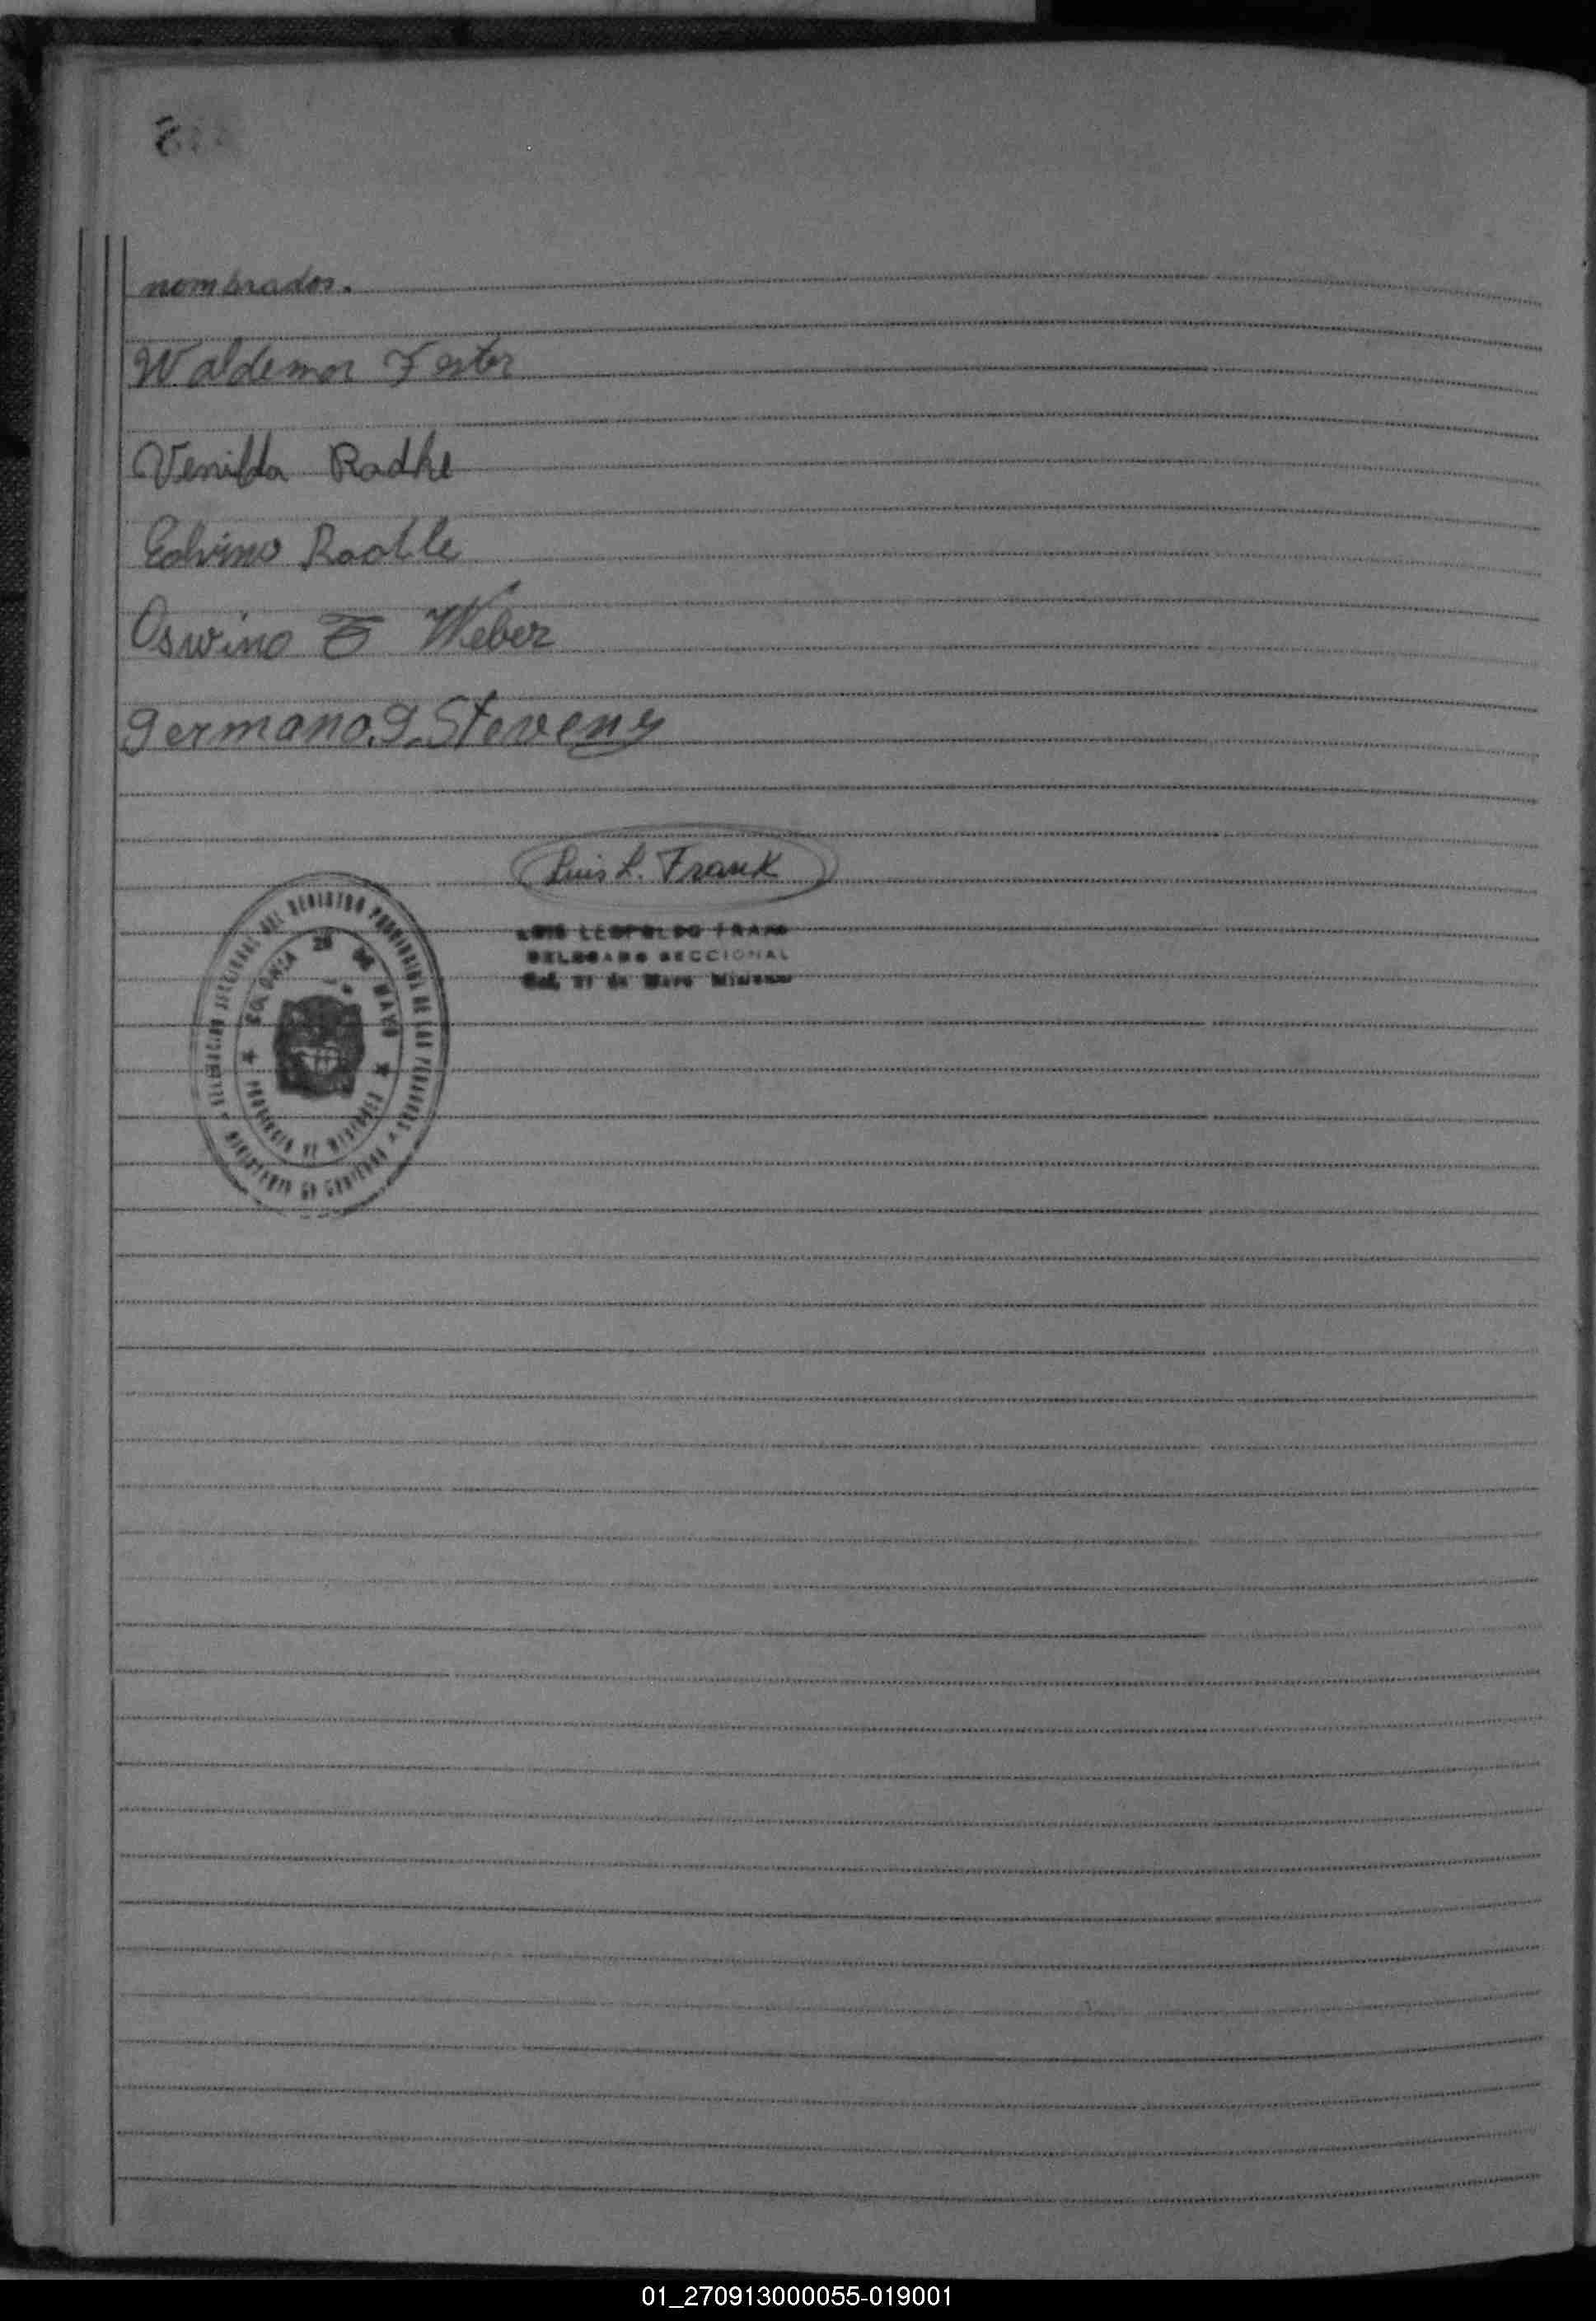 nombrados.
Waldemar Fester
Venilda Radke
Edvino Radke
Oswino E Weber
germano.g.Stevens
Luis L. Frank
LUIS LEOPOLDO FRANK
DELEGADO SECCIONAL
Col. 25 de Mayo Misiones
DELEGACION SECCIONAL DEL REGISTRO PROVINCIAL DE LAS PERSONAS
MINISTERIO DE GOBIERNO
COLONIA 25 DE MAYO
PROVINCIA DE MISIONES
01_270913000055-019001